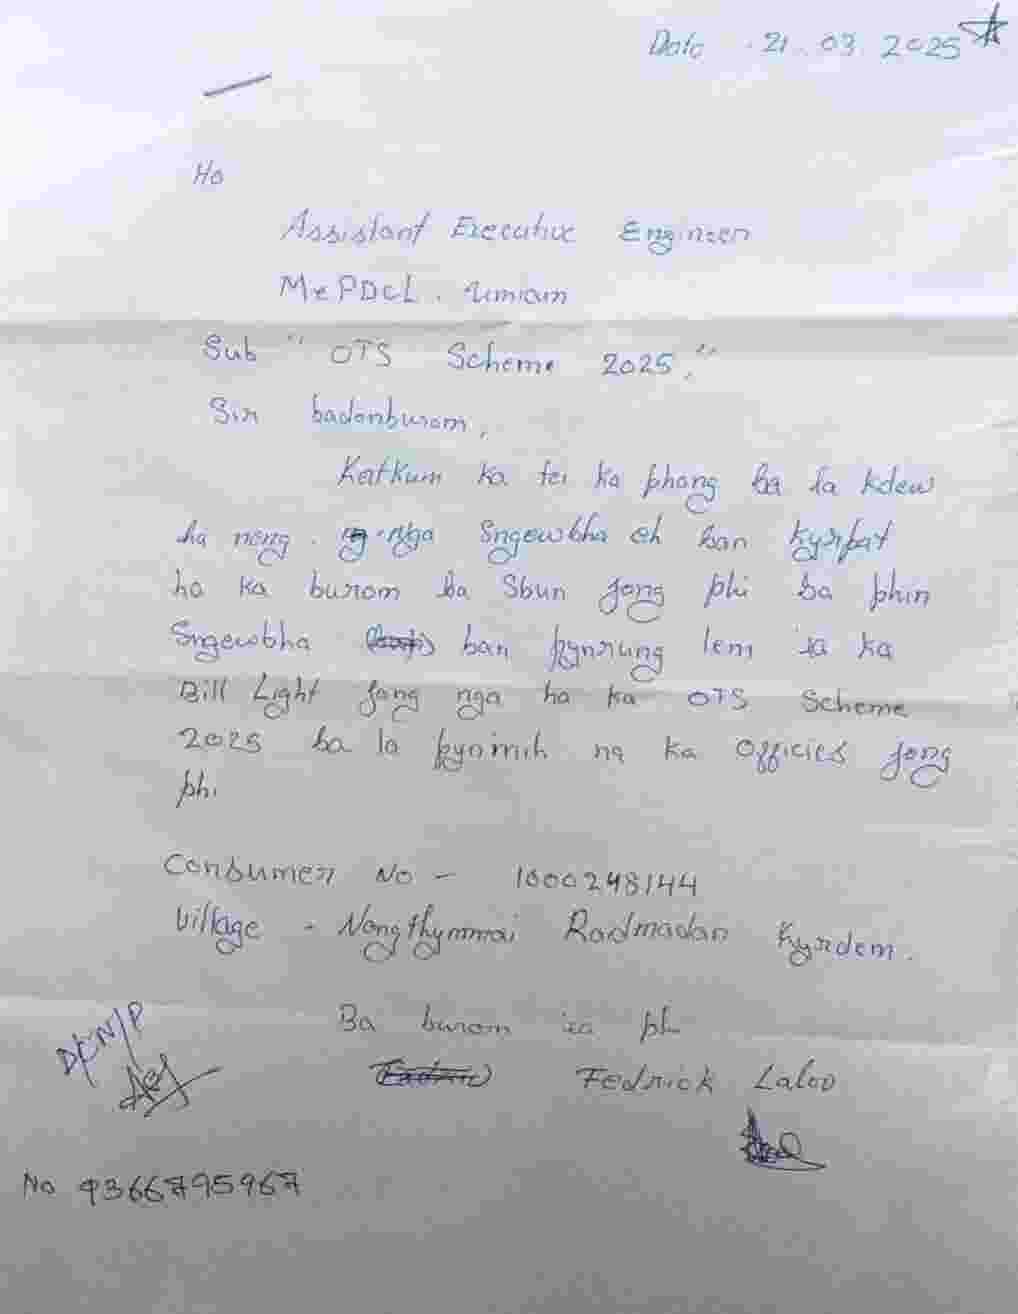 Date . 21 . 03 . 2025
Ho
Assistant Executive Engineer
MePDCL . Umiam
Sub " OTS Scheme 2025."
Sir badonburom,
Katkum ka tei ka phang ba la kdew
ha neng . nga Sngewbha eh ban kyrpat
ha ka burom ba Sbun jong phi ba phin
Sngewbha ban pynrung lem ia ka
Bill Light jong nga ha ka OTS Scheme
2025 ba la pynmih na ka Officies jong
phi
Consumer No - 1000248144
Village - Nongthymmai Raidmadan Kyrdem.
Ba burom ia phi
Fedrick Laloo
No 9366795967